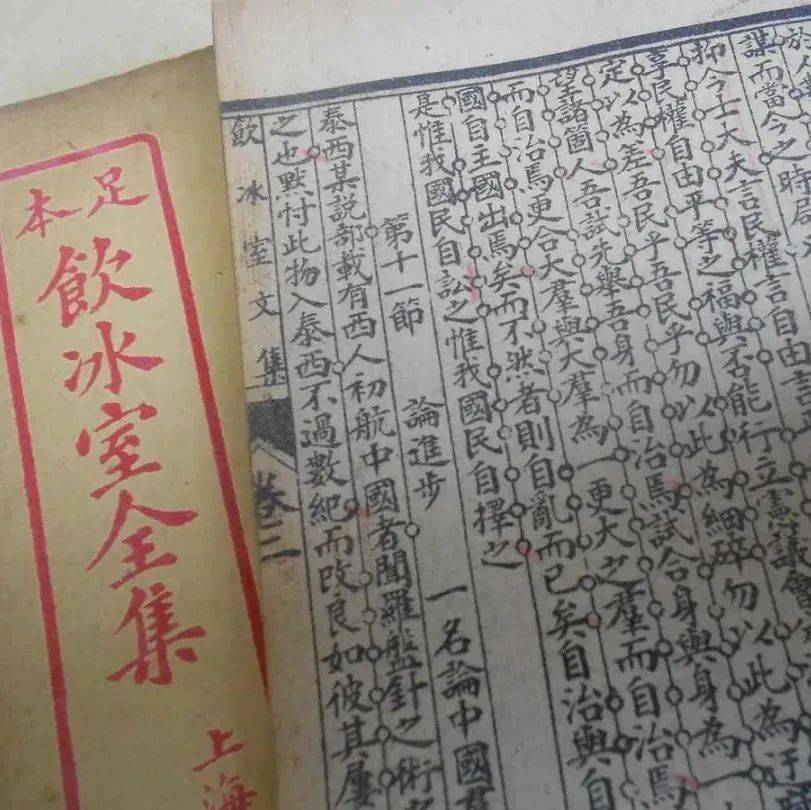 於
謀而當今之時
抑今士大夫言民權言自由言
享民權自由平等之福與否能行立憲議會
定以為差吾民乎吾民乎勿以此為細碎勿以此為
望諸箇人吾試先舉吾身而自治焉試合身與身為
而自治焉更合大羣與大羣為一更大之羣而自治焉
國自主國出焉矣而不然者則自亂而已矣自治與自
是惟我國民自訟之惟我國民自擇之
第十一節 論進步 一名論中國羣
泰西某說部載有西人初航中國者聞羅盤針之術
之也默忖此物入泰西不過數紀而改良如彼其屢
飲冰室文集 卷三
足本
飲冰室全集
上海